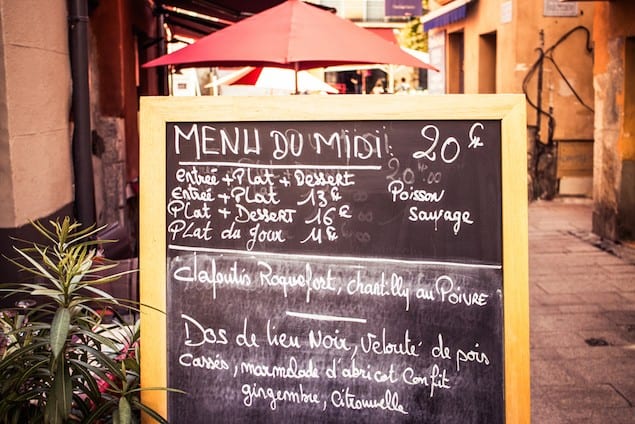 MENU DU MIDI 20€
Entrée + Plat + Dessert
Entrée + Plat 13€
Plat + Dessert 16€
Plat du jour 11€
Poisson
sauvage
Clafoutis Roquefort, chantilly au POIVRE
Dos de lieu Noir, Velouté de pois
cassés, marmelade d'abricot Confit
gingembre, Citronnelle